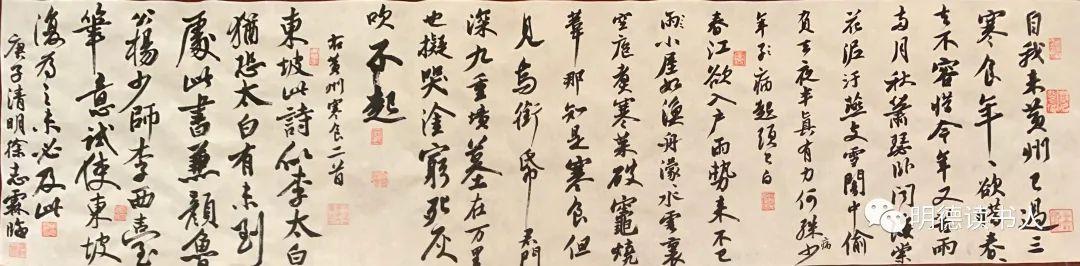 自我来黄州已过三
寒食年、欲惜春、
去不容惜今年又苦雨
两月秋萧瑟卧闻海棠
花泥污燕支雪闇中偷
负去夜半真有力何殊少
年子病起头已白
病
春江欲入户雨势来不已
雨小屋如渔舟濛水云裏
空庖煮寒菜破竈烧
苇那知是寒食但
见乌衔帋君门
深九重坟墓在万里
也拟哭塗穷死灰
吹不起
右黄州寒食二首
东坡此诗似李太白
犹恐太白有未到
处此书兼颜鲁
公杨少师李西台
笔意试使东坡
复为之未必及此
庚子清明徐志霖临
明德读书人